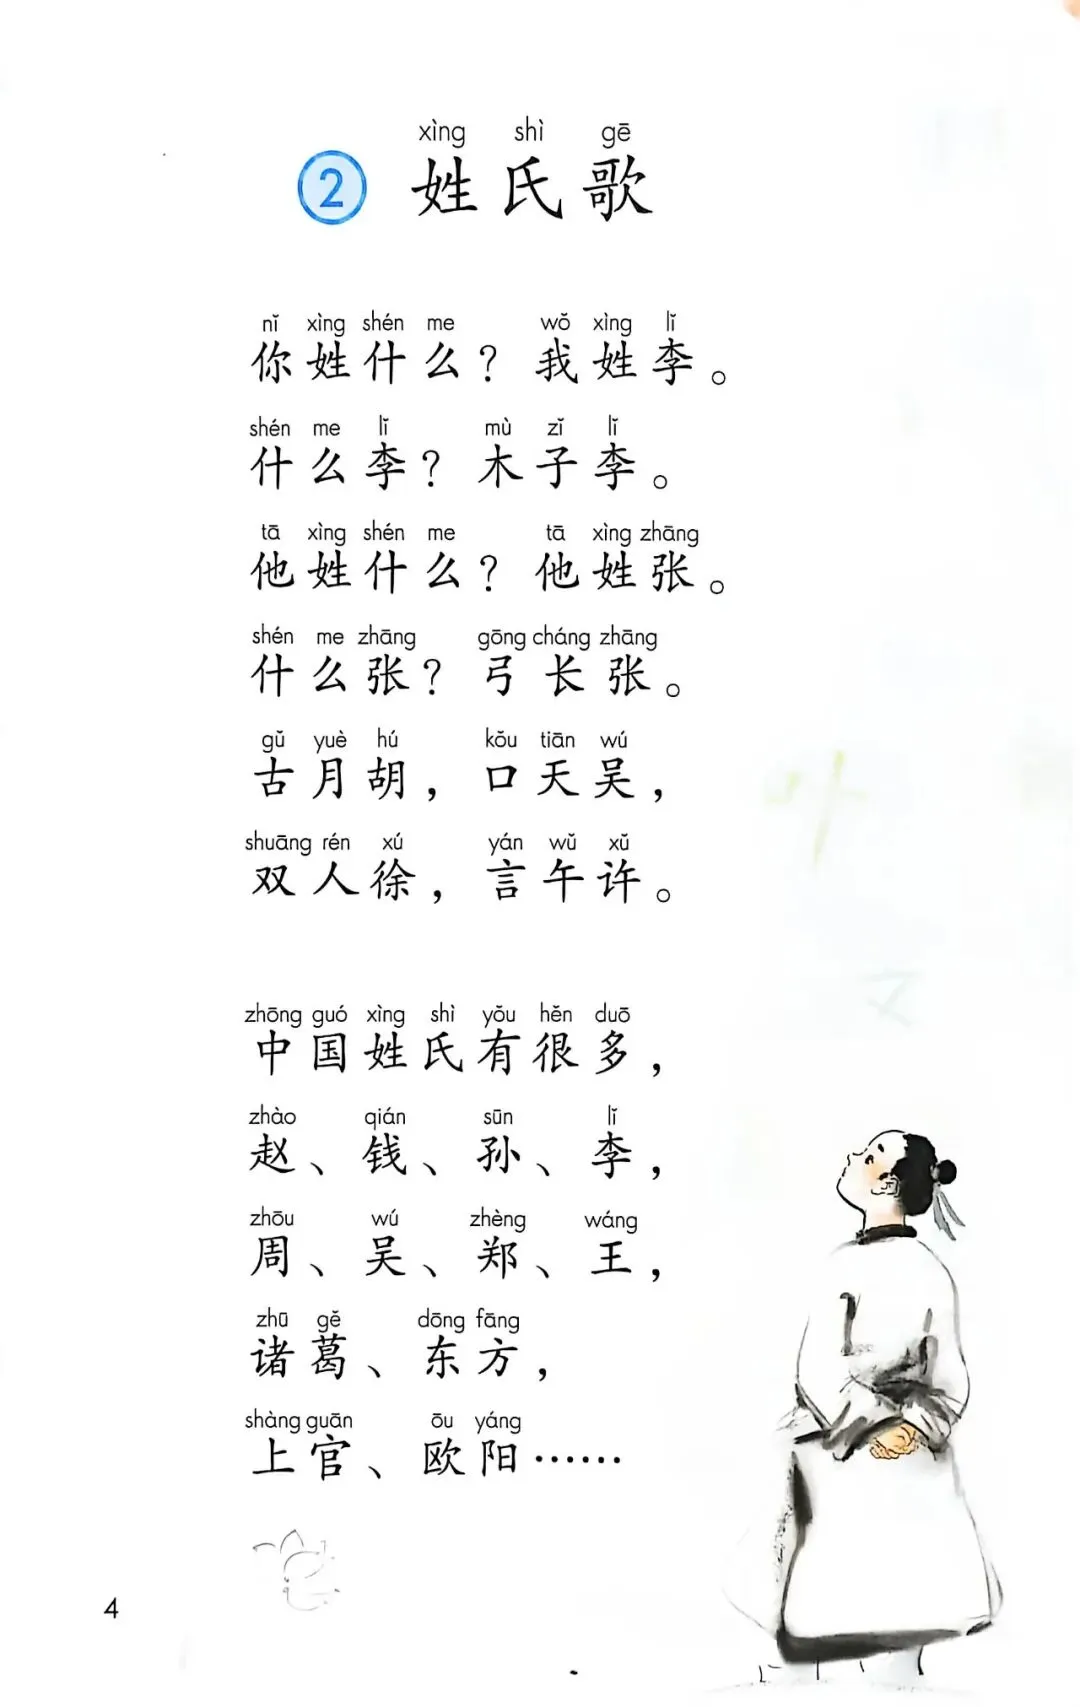 xìng shì gē
2 姓氏歌
nǐ xìng shén me wǒ xìng lǐ
你姓什么？我姓李。
shén me lǐ mù zǐ lǐ
什么李？木子李。
tā xìng shén me tā xìng zhāng
他姓什么？他姓张。
shén me zhāng gōng cháng zhāng
什么张？弓长张。
gǔ yuè hú kǒu tiān wú
古月胡，口天吴，
shuāng rén xú yán wǔ xǔ
双人徐，言午许。
zhōng guó xìng shì yǒu hěn duō
中国姓氏有很多，
zhào qián sūn lǐ
赵、钱、孙、李，
zhōu wú zhèng wáng
周、吴、郑、王，
zhū gě dōng fāng
诸葛、东方，
shàng guān ōu yáng
上官、欧阳……
4